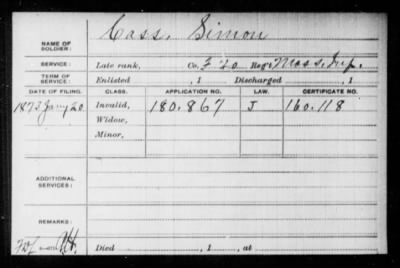 NAME OF SOLDIER: Cass, Simon
SERVICE: Late rank, Co. F 20 Reg't Mass. Inf.
TERM OF SERVICE: Enlisted , 1 Discharged , 1
DATE OF FILING. CLASS. APPLICATION NO. LAW. CERTIFICATE NO.
1873 Jany 20 Invalid, 180.867 J 160.118
Widow,
Minor,
ADDITIONAL SERVICES:
REMARKS:
Died , 1 , at